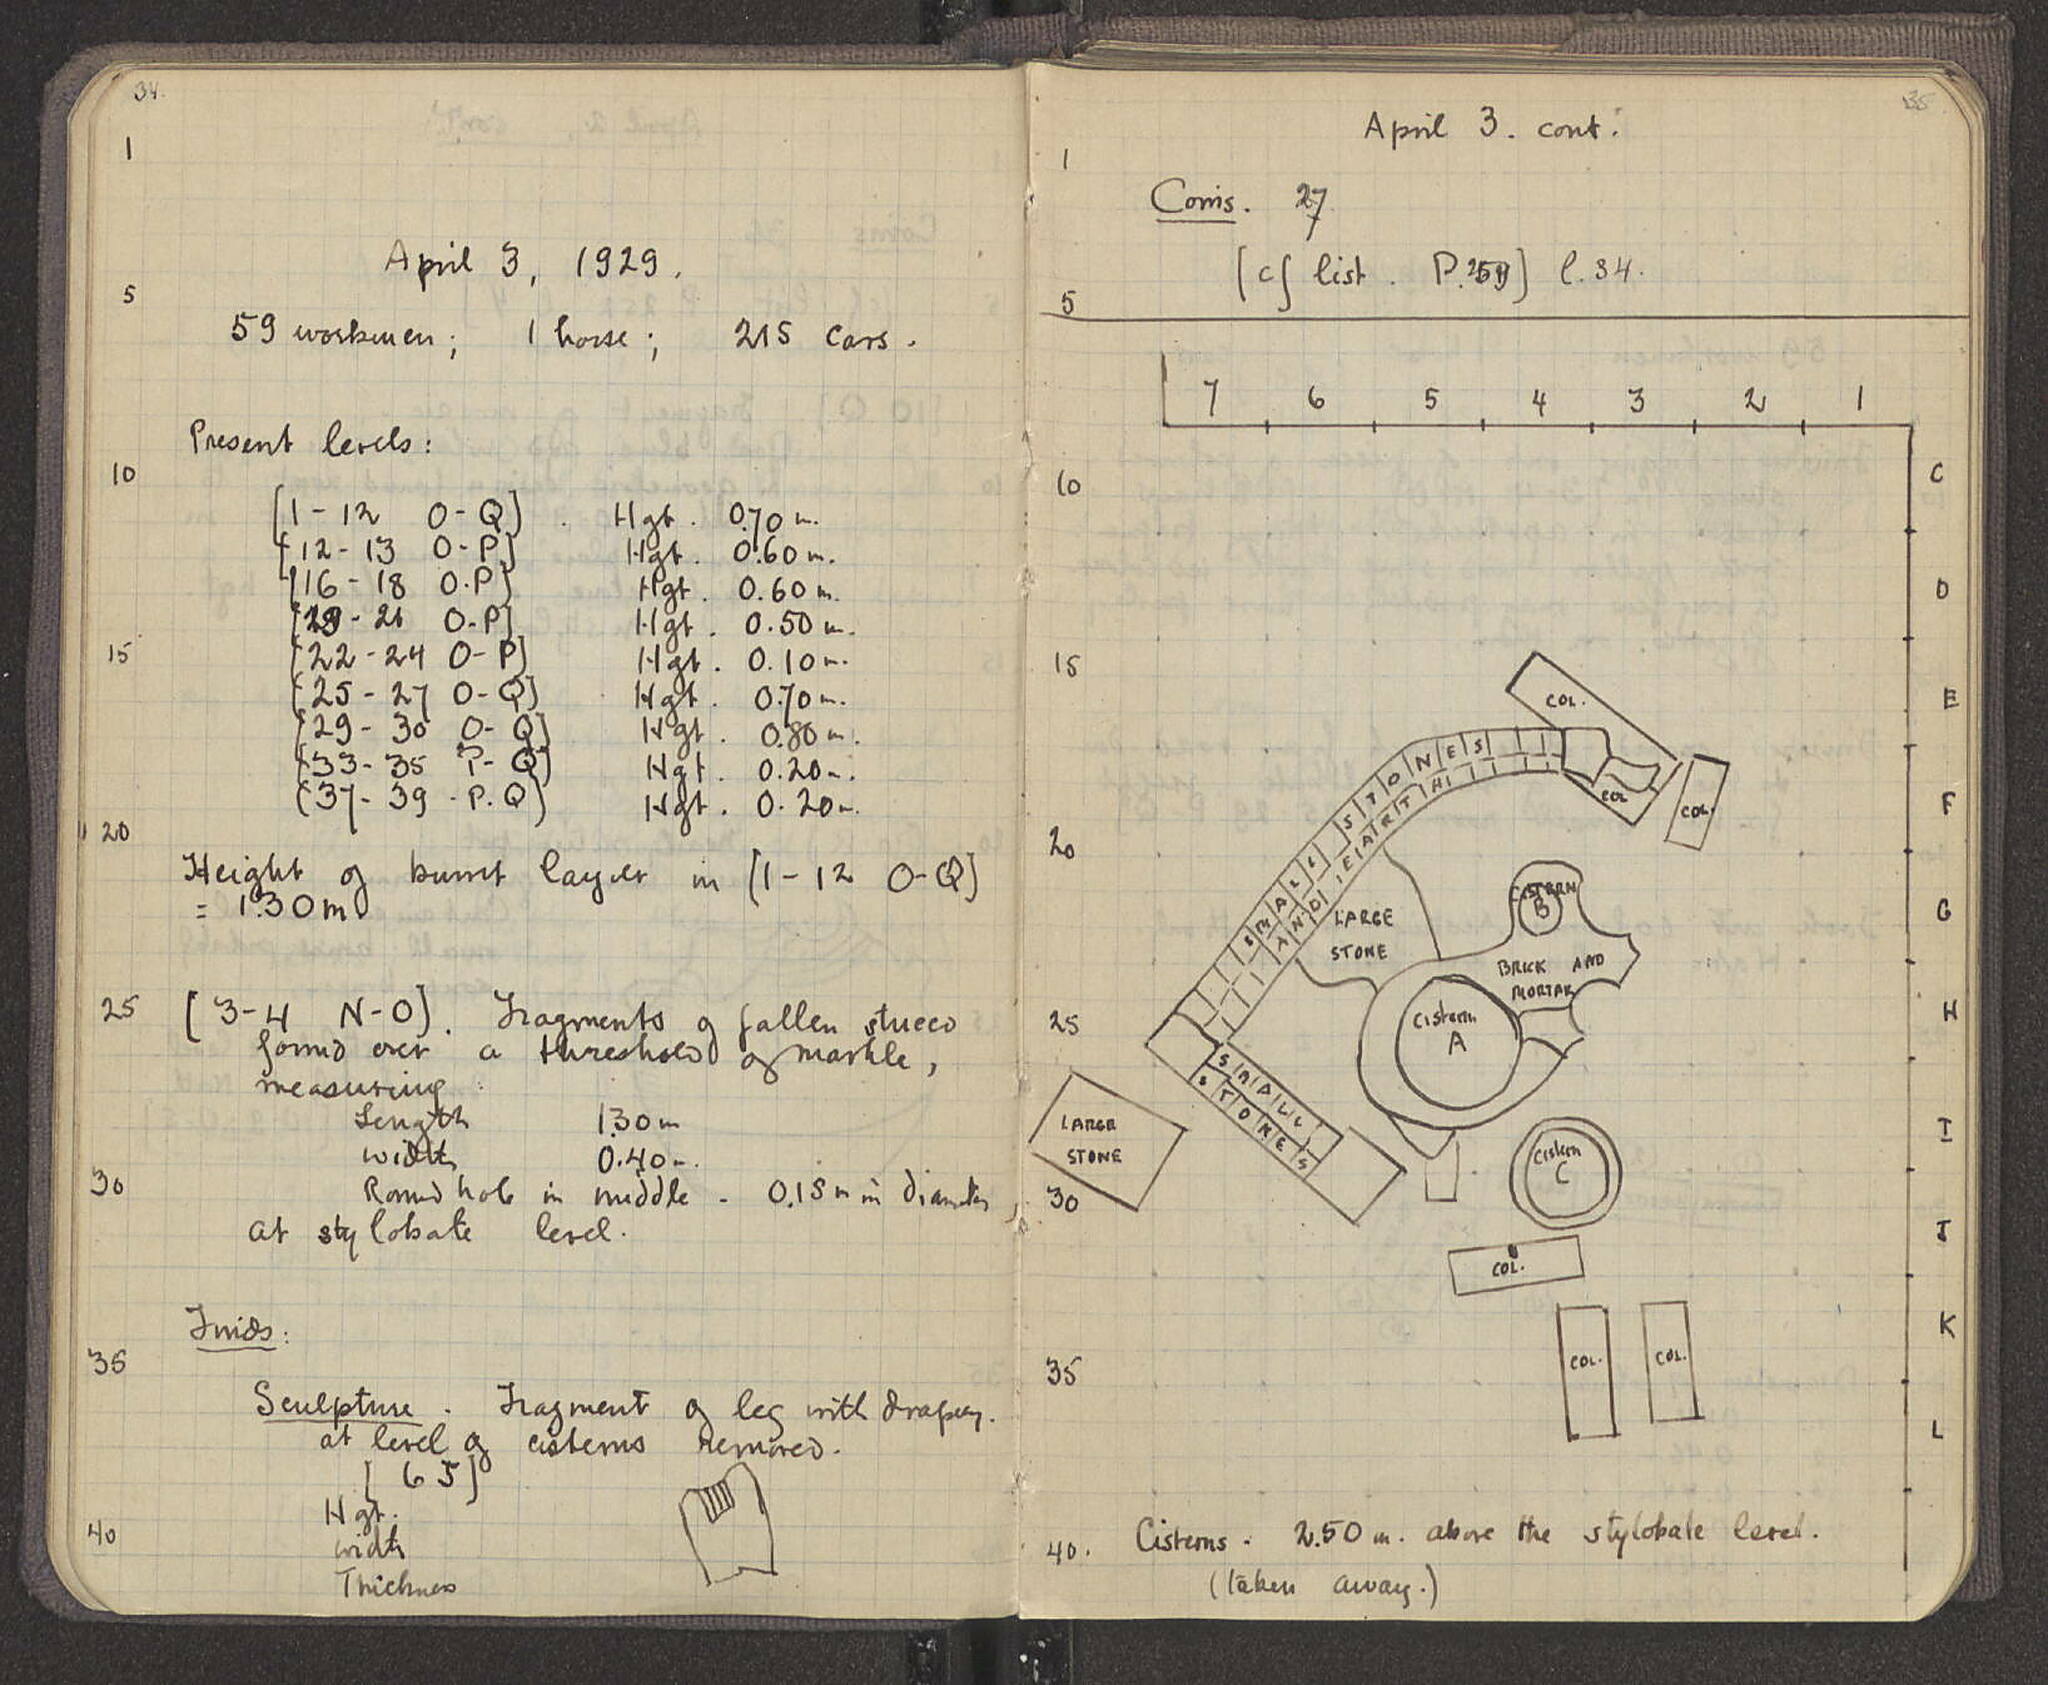 34.
1
April 3, 1929.
5
59 workmen; 1 horse; 215 cars.
Present levels:
10
[1-12 O-Q]. Hgt. 0.70 m.
[12-13 O-P] Hgt. 0.60 m.
[16-18 O.P] Hgt. 0.60 m.
O-P] Hgt. 0.50 m.
15
[22-24 O-P] Hgt. 0.10 m.
[25-27 O-Q] Hgt. 0.70 m.
[29-30 O-Q] Hgt. 0.80 m.
[33-35 P-Q] Hgt. 0.20 m.
[37-39 - P.Q] Hgt. 0.20 m.
20
Height of burnt layer in [1-12 O-Q]
= 1.30 m
25
[3-4 N-O]. Fragments of fallen stucco
found over a threshold of marble,
measuring:
Length 1.30 m
width 0.40 m.
30
Round hole in middle - 0.15 m in diameter
at stylobate level.
Finds:
35
Sculpture. Fragment of leg with drapery.
at level of cisterns removed.
[6 J]
Hgt.
40
width
Thickness
35
April 3. cont:
1
Coins. 27
[cf list. P. ] l.34.
5
7 6 5 4 3 2 1
10
C
D
15
E
COL.
SMALL STONES
AND EARTH
COL
COL.
F
20
CISTERN
B
G
LARGE
STONE
BRICK AND
MORTAR
25
Cistern
A
H
SMALL
STONES
LARGE
STONE
I
Cistern
C
30
J
COL.
K
35
COL.
COL.
L
40.
Cisterns. 2.50 m. above the stylobate level.
(taken away.)